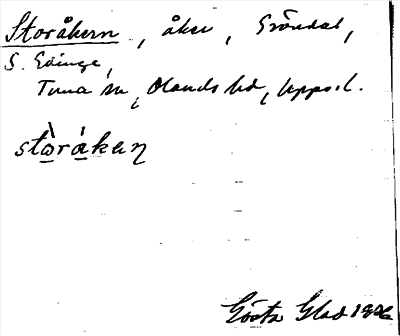 Storåkern, åker, Gröndal,
S. Edinge,
Tuna sn, Olands hd, Upps. l.
stòrákeṇ
Gösta Glad 1926